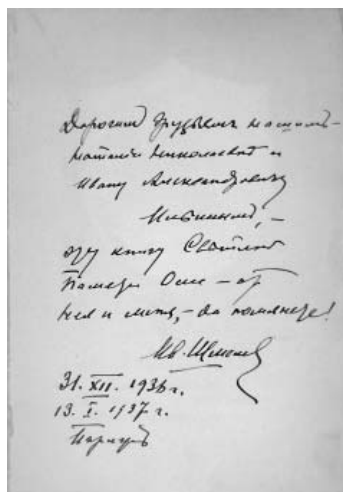 Дорогимъ друзьямъ нашимъ —
Наталіи Николаевнѣ и
Ивану Александровичу
Ильинымъ, —
эту книгу Свѣтлой
Памяти Оли — отъ
нея и меня, — да помянете!
Ив. Шмелев
31. XII. 1936 г.
13. I. 1937 г.
Парижъ